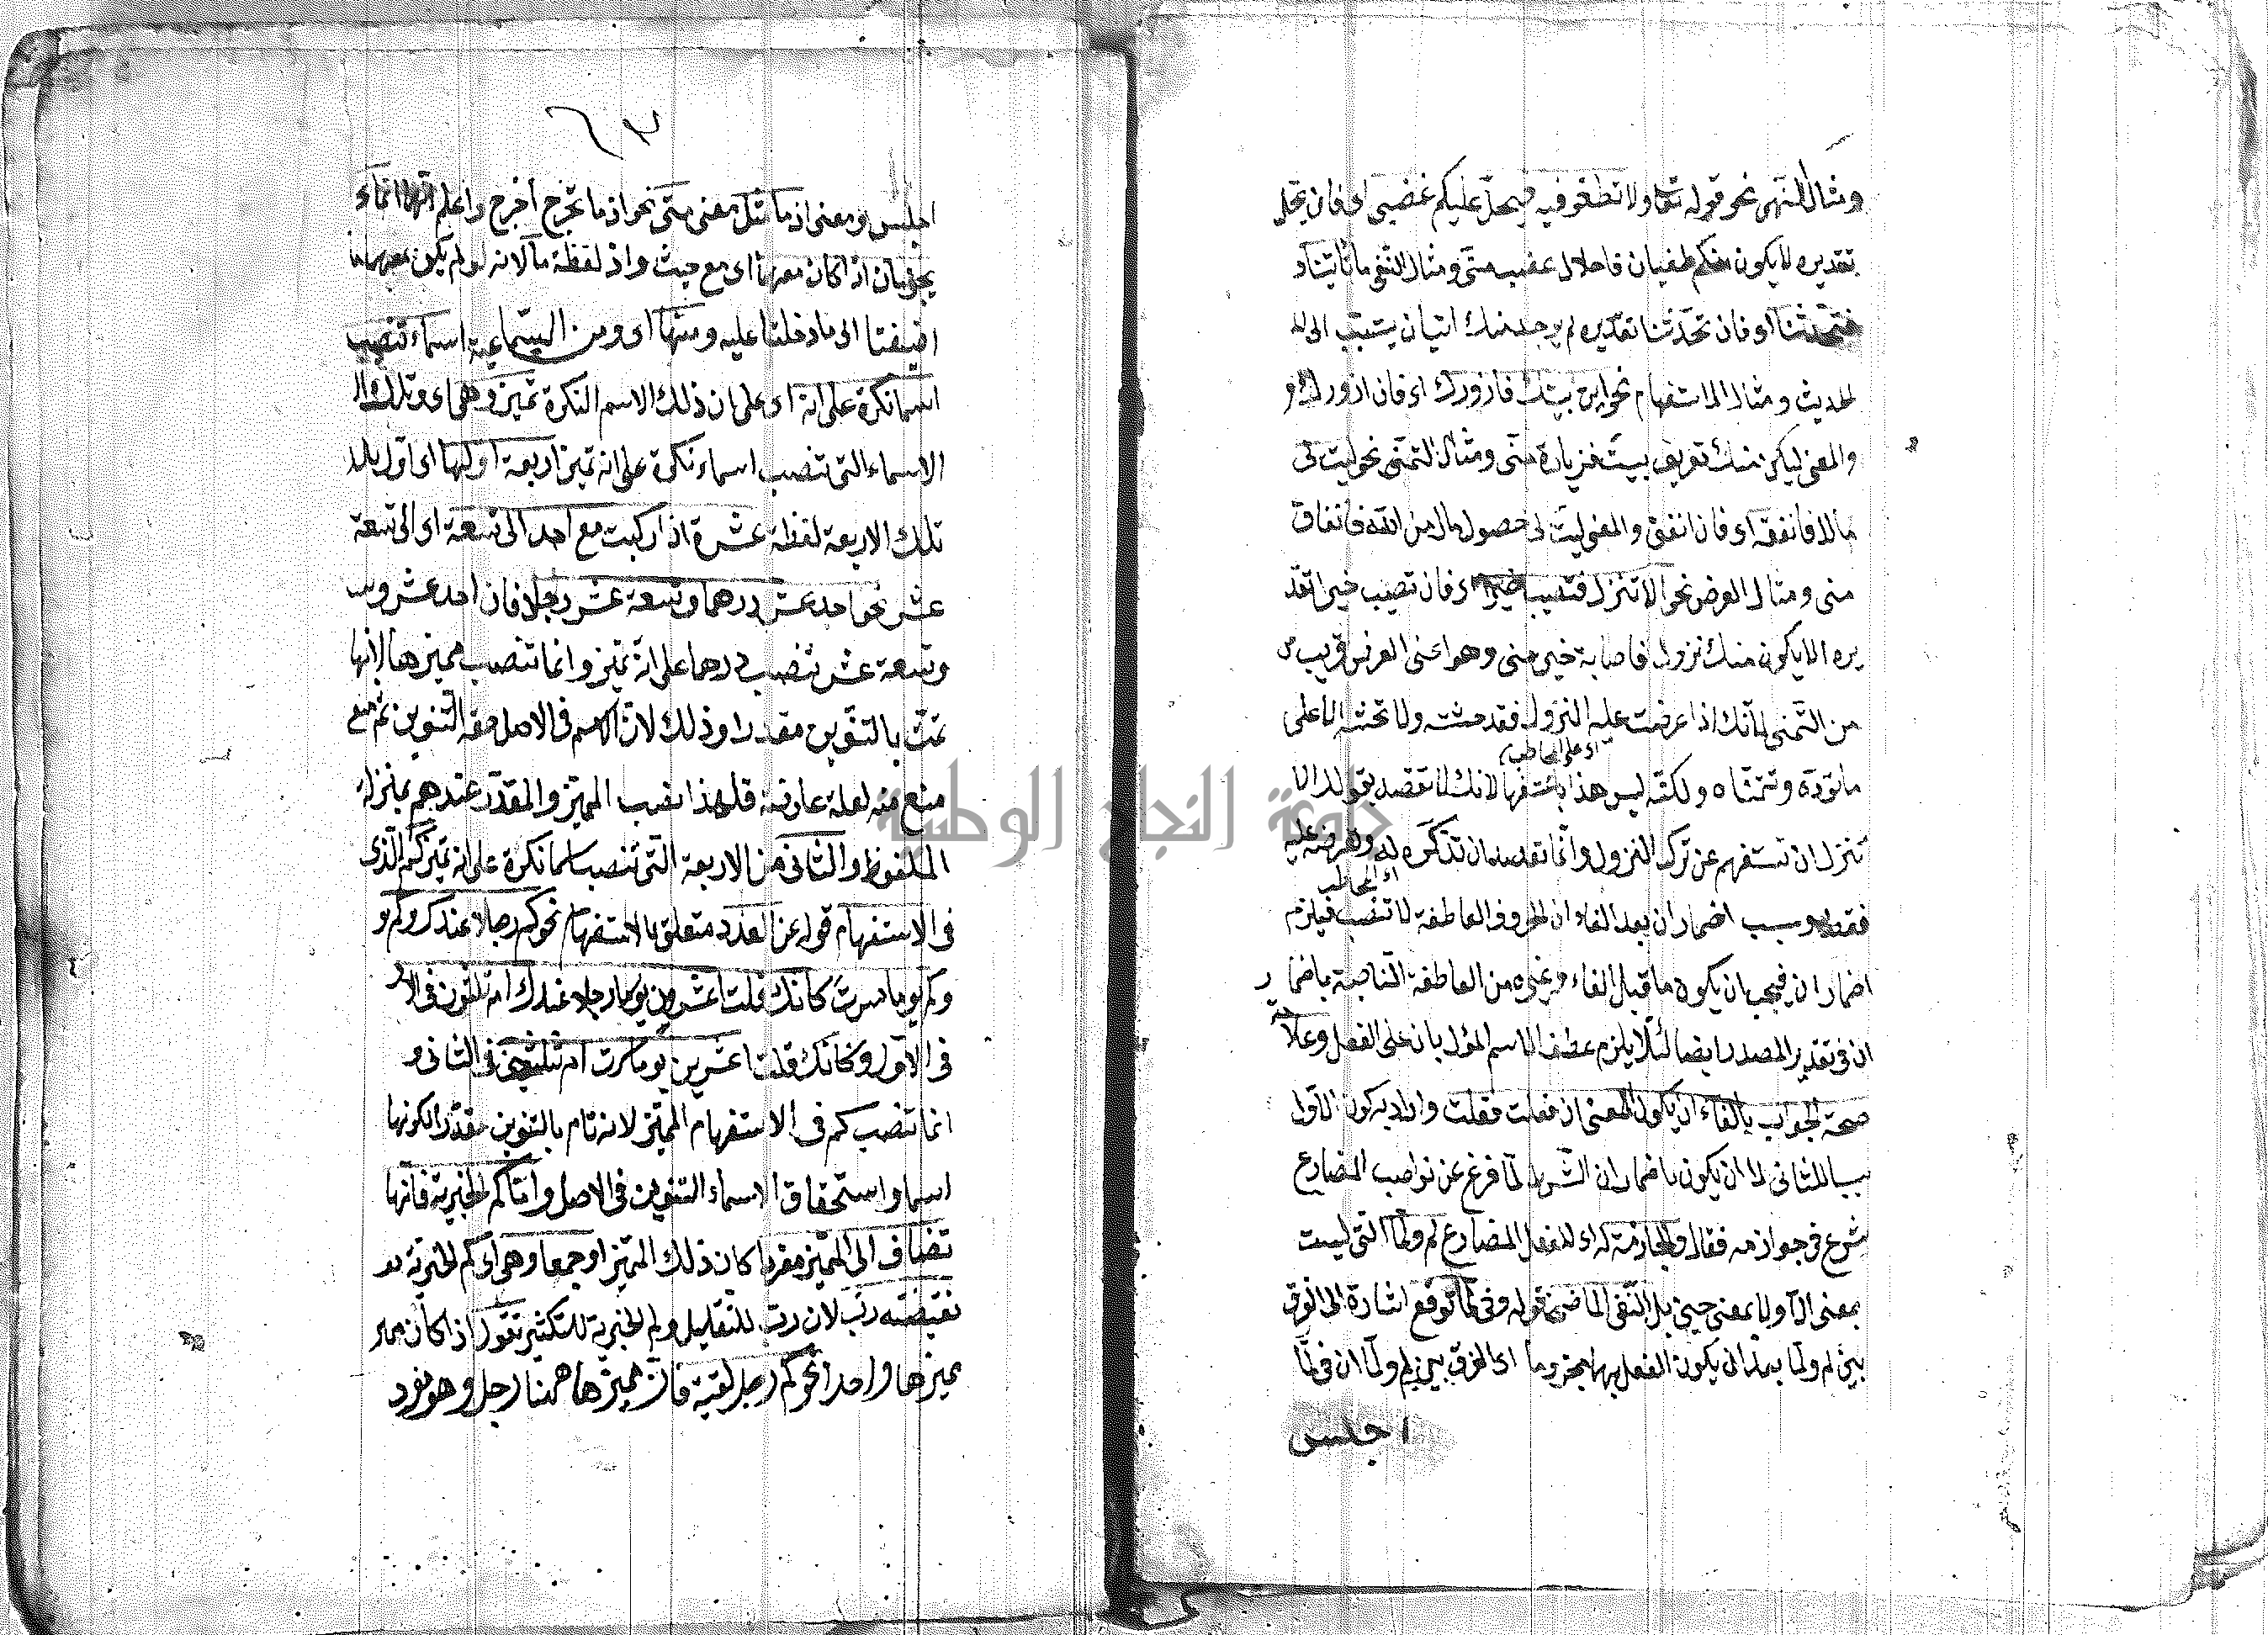 ومثال النهى نحو قوله تعا ولا تطغو فيه فيحل عليكم غضبى اى فان يحل
تقديره لا يكون منكم طغيان فاحلال غضب منّى ومثال النفى ما تأتينا
فتحدثنا اى فان تحدّثنا تقديره لم يوجد منك اتيان يتسبّب الى
الحديث ومثال الاستفهام نحو اين بيتك فازورك اى فان ازورك و
والمعنى ليكن منك تعريف بيت فزيارة منّى ومثال التمنى نحو ليت لى
مالا فانفقه اى فان انفق والمعنى ليت لى حصول مال من الله فانفاق
منى ومثال العرض نحو الا تنزل فتصيب خيرا اى فان تصيب خيرا تقد
يره الا يكون منك نزول فاصابة خير منى وهو اعنى العرض قريب
من التّمنى لانّك اذا عرضت عليه النزول فقد حثثته ولا تحثه الا على
اى على المخاطب
ما تودّه وتتمنّاه ولكنّه ليس هذا باستفهام لانك لا تقصد بقولك الا
تنزل ان تستفهم عن ترك النزول وانّما تقصد ان تذكّره له وتعرضه عليه
اى المخاطب
فقط وسبب اضمار ان بعد الفاء ان الحروف العاطفة لا تنصب فيلزم
اضمار ان فيجب ان يكون ما قبل الفاء وغيره من العاطفة النّاصبة باضما ر
ان فى تقدير المصدر ايضا لئلّا يلزم عطف الاسم المؤل بان على الفعل وعلامة
صحة الجواب بالفاء ان يكون المعنى ان فعلت فعلت واراد به كون الاول
سببا للثانى لا ان يكون باضمار ان الشرط لمّا فرغ عن نواصب المضارع
شرع فى جوازمه فقال والجازمة له اى للفعل المضارع لم ولمّا التى ليست
بمعنى الّا ولا بمعنى حين بل النّفى الماضى قوله وفى لمّا توقع اشارة الى الفرق
بين لم ولمّا بعد ان يكون الفعل بهما مجزوما اى الفرق بين لم ولمّا ان فى لمّا
اجلس
اجلس ومعنى اذ ما مثل معنى متى نحو اذ ما تخرج اخرج واعلم انّهما انّما
يجزمان اذا كان معهما اى مع حيث واذ لفظة ما لانه لو لم يكن معهما ما
اضيفتا الى ما دخلتا عليه ومنها اى ومن السّماعية اسماء تنصب
اسما نكرة على انه اى على ان ذلك الاسم النكرة تميز وهى اى وتلك الـ
الاسماء التى تنصب اسماء نكرة على انه تميز اربعة اولها اى اوّل
تلك الاربعة لفظة عشرة اذا ركبت مع احد الى تسعة اى الى تسعة
عشر نحو احد عشر درهما وتسعة عشر رجلا فان احد عشر
وتسعة عشر تنصب درهما على انّه تميز وانما تنصب مميز هما لانها
تمّت بالتنوين مقدرا وذلك لانّ الاسم فى الاصل حقه التّنوين ثم منع
منع منه لعلة عارضة فلهذا نصب المميّز والمقدّر عندهم بمنزلة
الملفوظ والثانى من الاربعة التى تنصب اسما نكرة على انه تميز كم الّذى
فى الاستفهام قوله عن العدد متعلق بالاستفهام نحو كم رجلا عندك وكم يو
وكم يوما سرت كانك قلت اعشرون رجلا عندك ام ثلثون فى الاو
فى الاوّل وكانّك قلت اعشرين يوما سرت ام ثلثين فى الثانى و
انما تنصب كم فى الاستفهام المميّز لانه تام بالتنوين مقدّر لكونها
اسما واستحقاق الاسماء التنوين فى الاصل وامّا كم الخبرية فانّها
تضاف الى المميّز مفردا كان ذلك المميّز او جمعا وهى اى كم الخبريّة
نقيضة ربّ لان ربّ للتقليل وكم الخبرية للتكثير تقول اذا كان مميز
مميزها واحدا نحو كم رجل لقيته فانّ مميزها ههنا رجل وهو مفرد
جامعة النجاح الوطنية